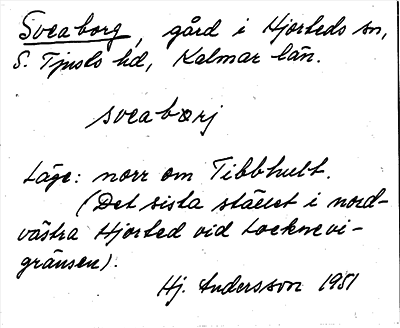 Sveaborg, gård i Hjorteds sn,
S. Tjusts hd, Kalmar län.
sveabårj
Läge: norr om Tibbhult.
(Det sista stället i nord-
västra Hjorted vid Locknevi-
gränsen).
Hj. Andersson 1951